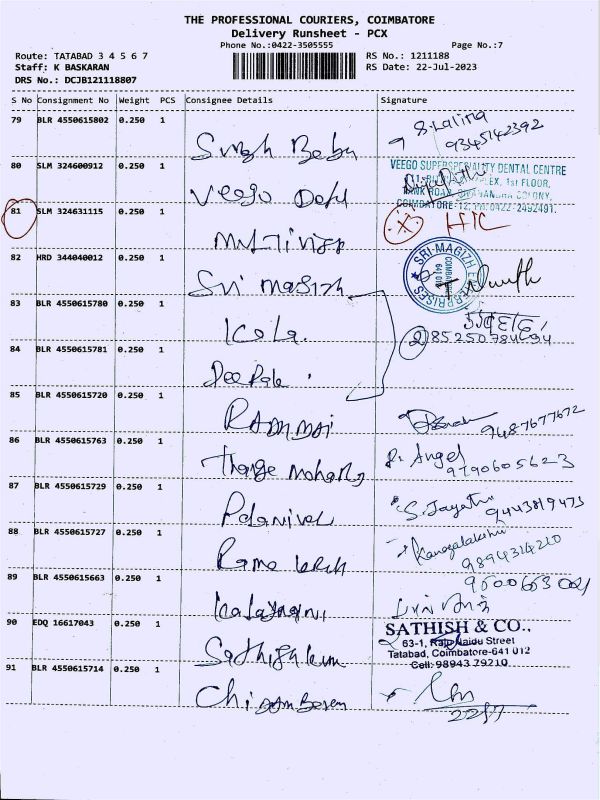 THE PROFESSIONAL COURIERS, COIMBATORE
Delivery Runsheet - PCX
Phone No.:0422-3505555 Page No.:7
Route: TATABAD 3 4 5 6 7 RS No.: 1211188
Staff: K BASKARAN RS Date: 22-Jul-2023
DRS No.: DCJB121118807
S No Consignment No Weight PCS Consignee Details Signature
79 BLR 4550615802 0.250 1
Singh Babu S. Lalitha 9345142392
80 SLM 324600912 0.250 1
Veego Detl VEEGO SUPERSPECIALITY DENTAL CENTRE
1st FLOOR,
COIMBATORE-12, PH:0422-2492491.
81 SLM 324631115 0.250 1
X H/C
82 HRD 344040012 0.250 1
Sri magizh SRI MAGIZH ENTERPRISES COIMBATORE
83 BLR 4550615780 0.250 1
Kala
84 BLR 4550615781 0.250 1
Deepak
85 BLR 4550615720 0.250 1
Rammai 9487677672
86 BLR 4550615763 0.250 1
Thange Mohan R. Angel
9790605623
87 BLR 4550615729 0.250 1
Palanivel S. Jayathi 9443819473
88 BLR 4550615727 0.250 1
Rama Kanagalakshmi
9894314210
89 BLR 4550615663 0.250 1
90 EDQ 16617043 0.250 1
Sathiyakum SATHISH & CO.,
63-1, Raju Naidu Street
Tatabad, Coimbatore-641 012
Cell: 98943 79210
91 BLR 4550615714 0.250 1
Chidambaram
22/7